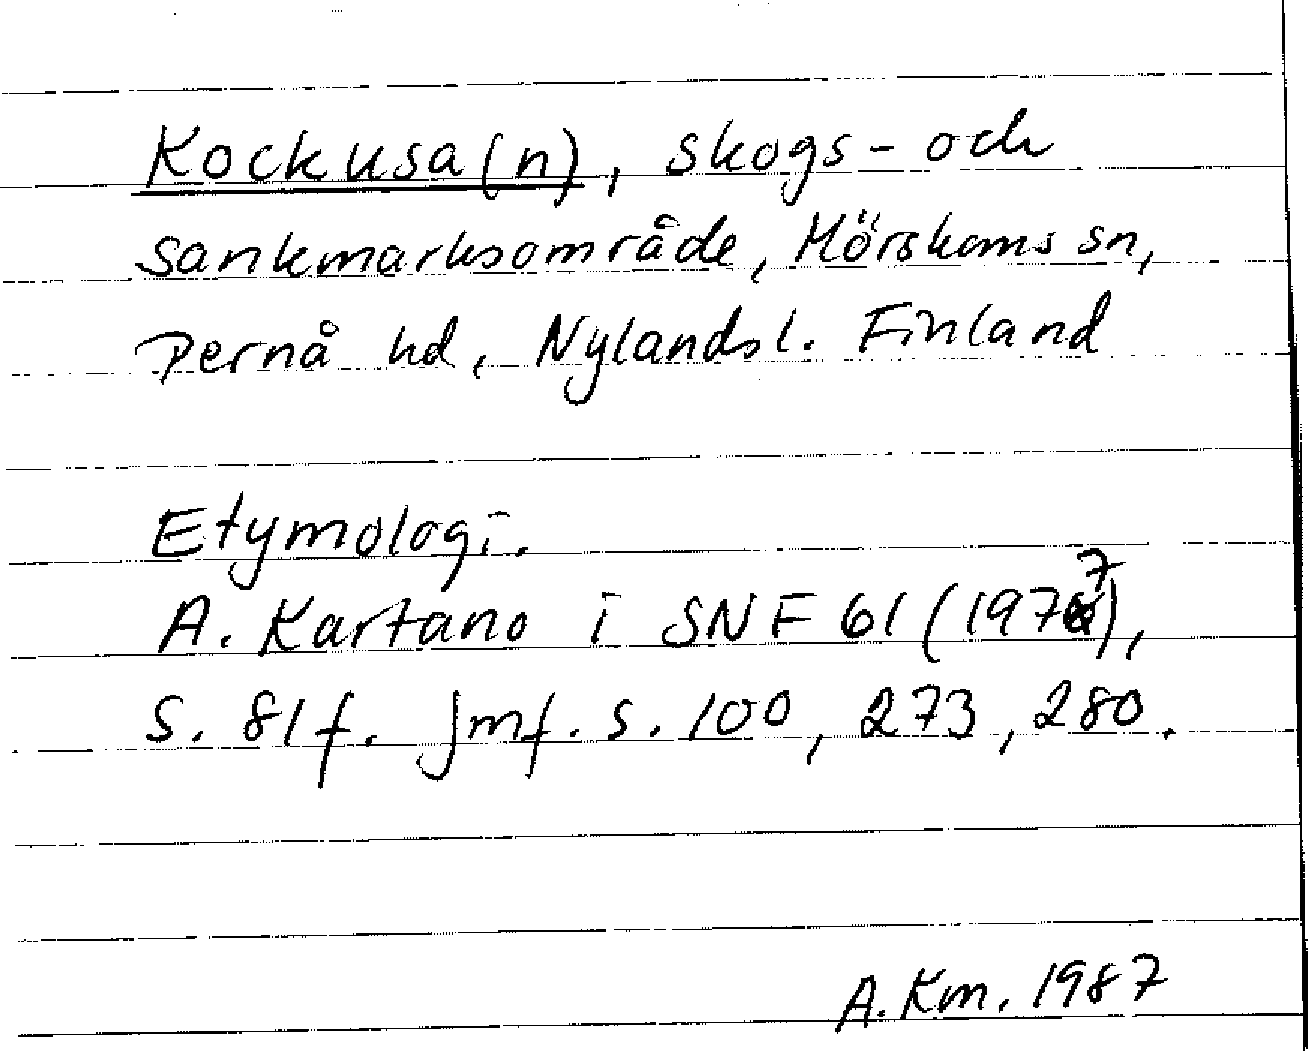 Kockusa(n), skogs- och
sankmarksområde, Mörskoms sn,
Pernå hd, Nylands l. Finland
Etymologi.
A. Kartano i SNF 61 (1977),
s. 81 f. Jmf. s. 100, 273, 280.
A. Km. 1987